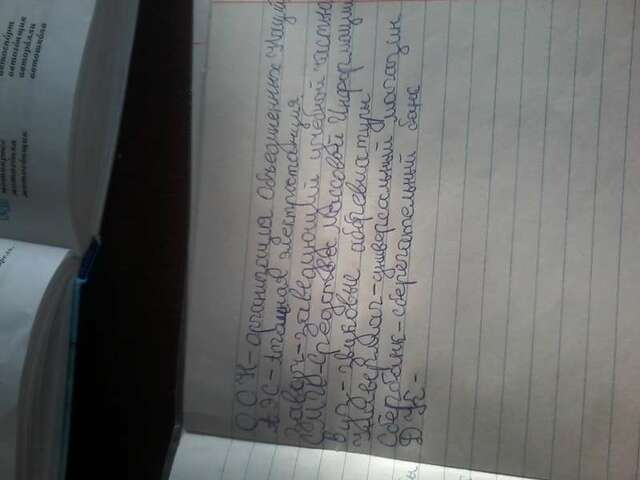 мотокросс
мотогонки
мотогонщик
автоспорт
автогонщик
авторалли
автошкола
ООН - организация Объединенных Наций
АЭС - Атомная электростанция
Завуч - заведующий учебной частью
СМИ - Средства Массовой Информации
Вуз - звуковые аббревиатуры
Универмаг - универсальный магазин
Сбербанк - сберегательный банк
ДК -